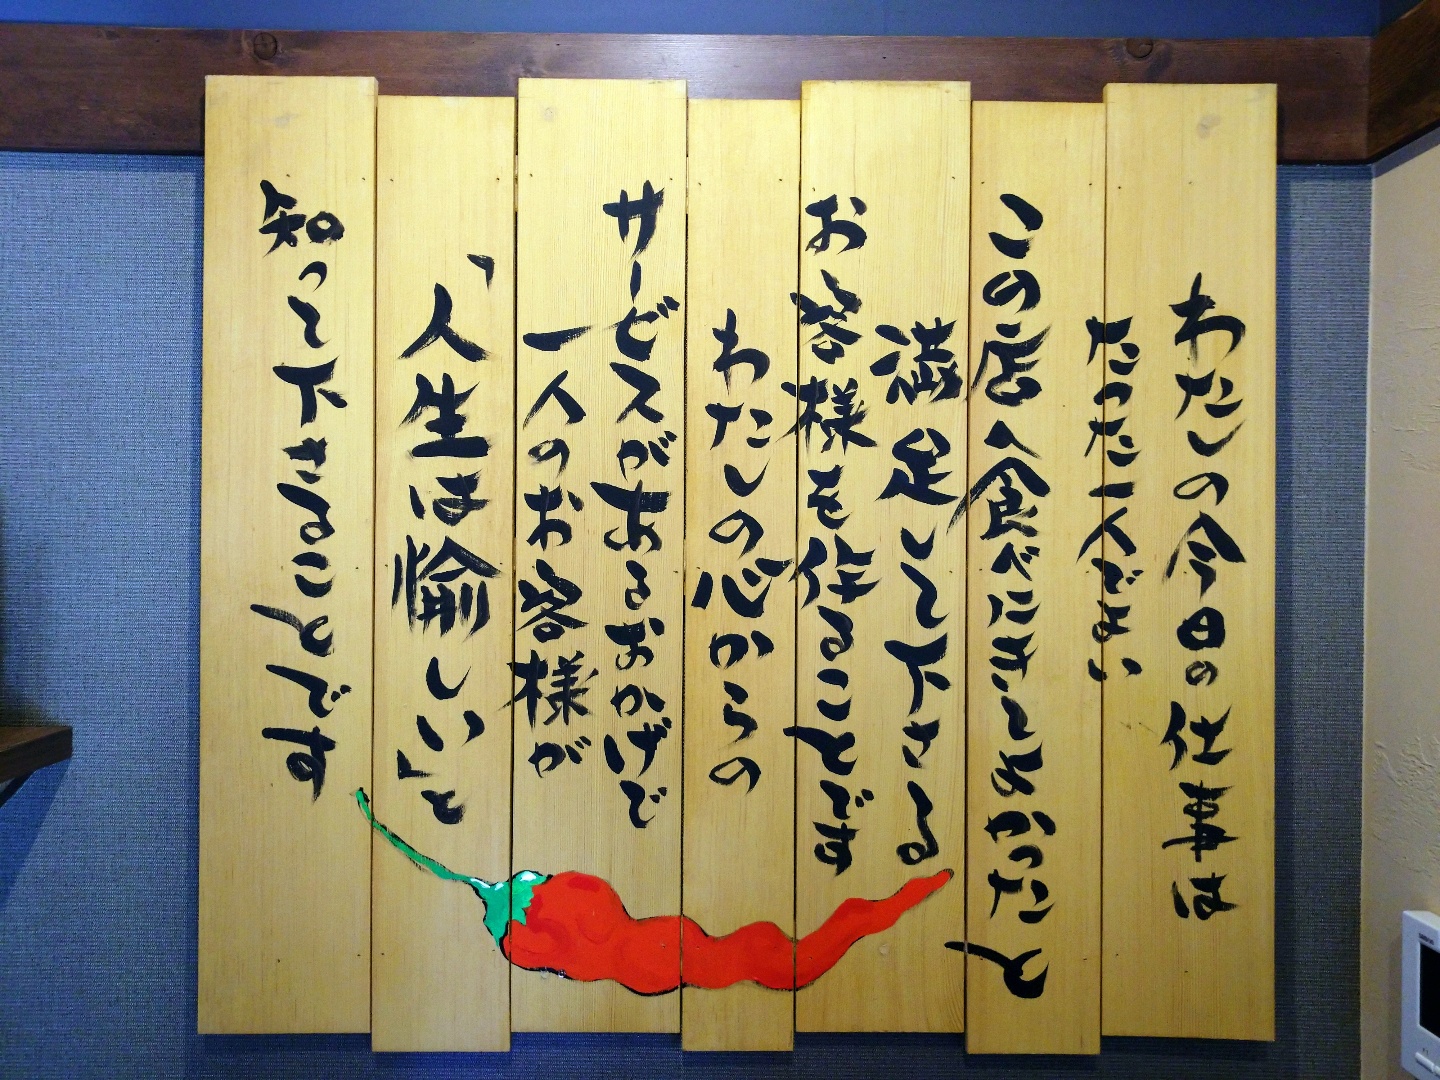 わたしの今日の仕事は
たった一人でよい
この店へ食べにきてよかったと
満足して下さる
お客様を作ることです
わたしの心からの
サービスがあるおかげで
一人のお客様が
「人生は愉しい」と
知って下さることです